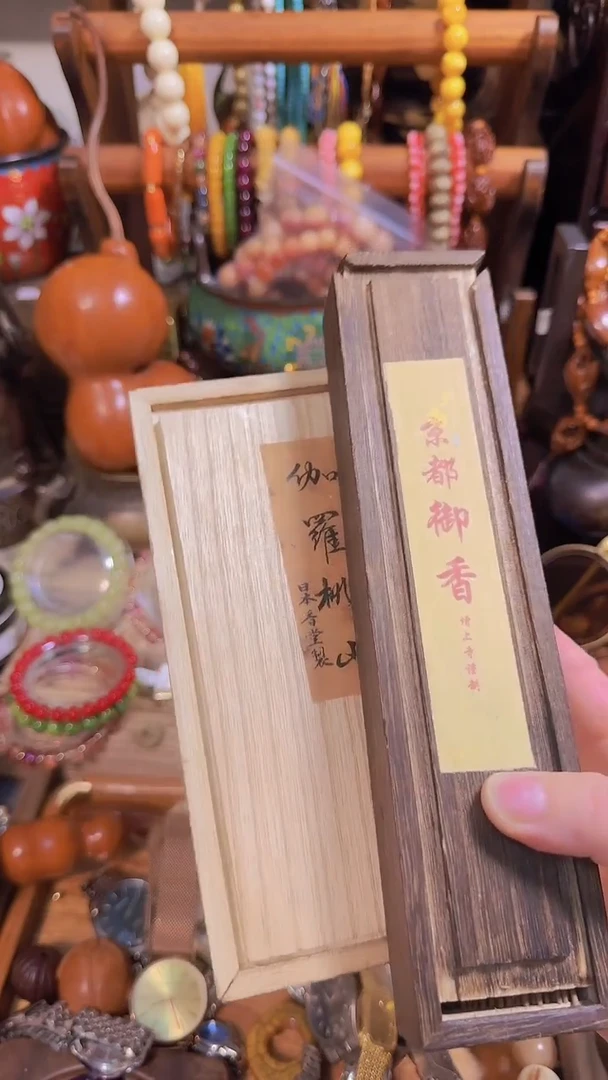 伽羅桃山
日本香堂製
京都御香
增上寺謹制